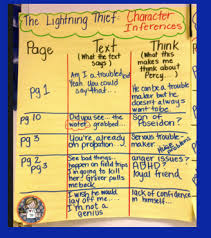 The Lightning Thief: Character
Inferences
Page
Text
(What the text
says)
Think
(What this
makes me
think about
Percy...)
pg 1
Am I a troubled
Yeah. You could
say that...
He can be a trouble
maker but he
doesn't always
want to be.
pg 10
Did you see... the
water grabbed...
Son of
Poseidon?
pg 3
You're already
on probation
Serious trouble-
maker
pg 2
pg 3
See bad things
happen on field trips
I'm going to kill
her! Grover pulls
me back
anger issues?
ADHD?
loyal friend
I wish he would
lay off me.
I'm not a
genius
lack of confidence
in himself...